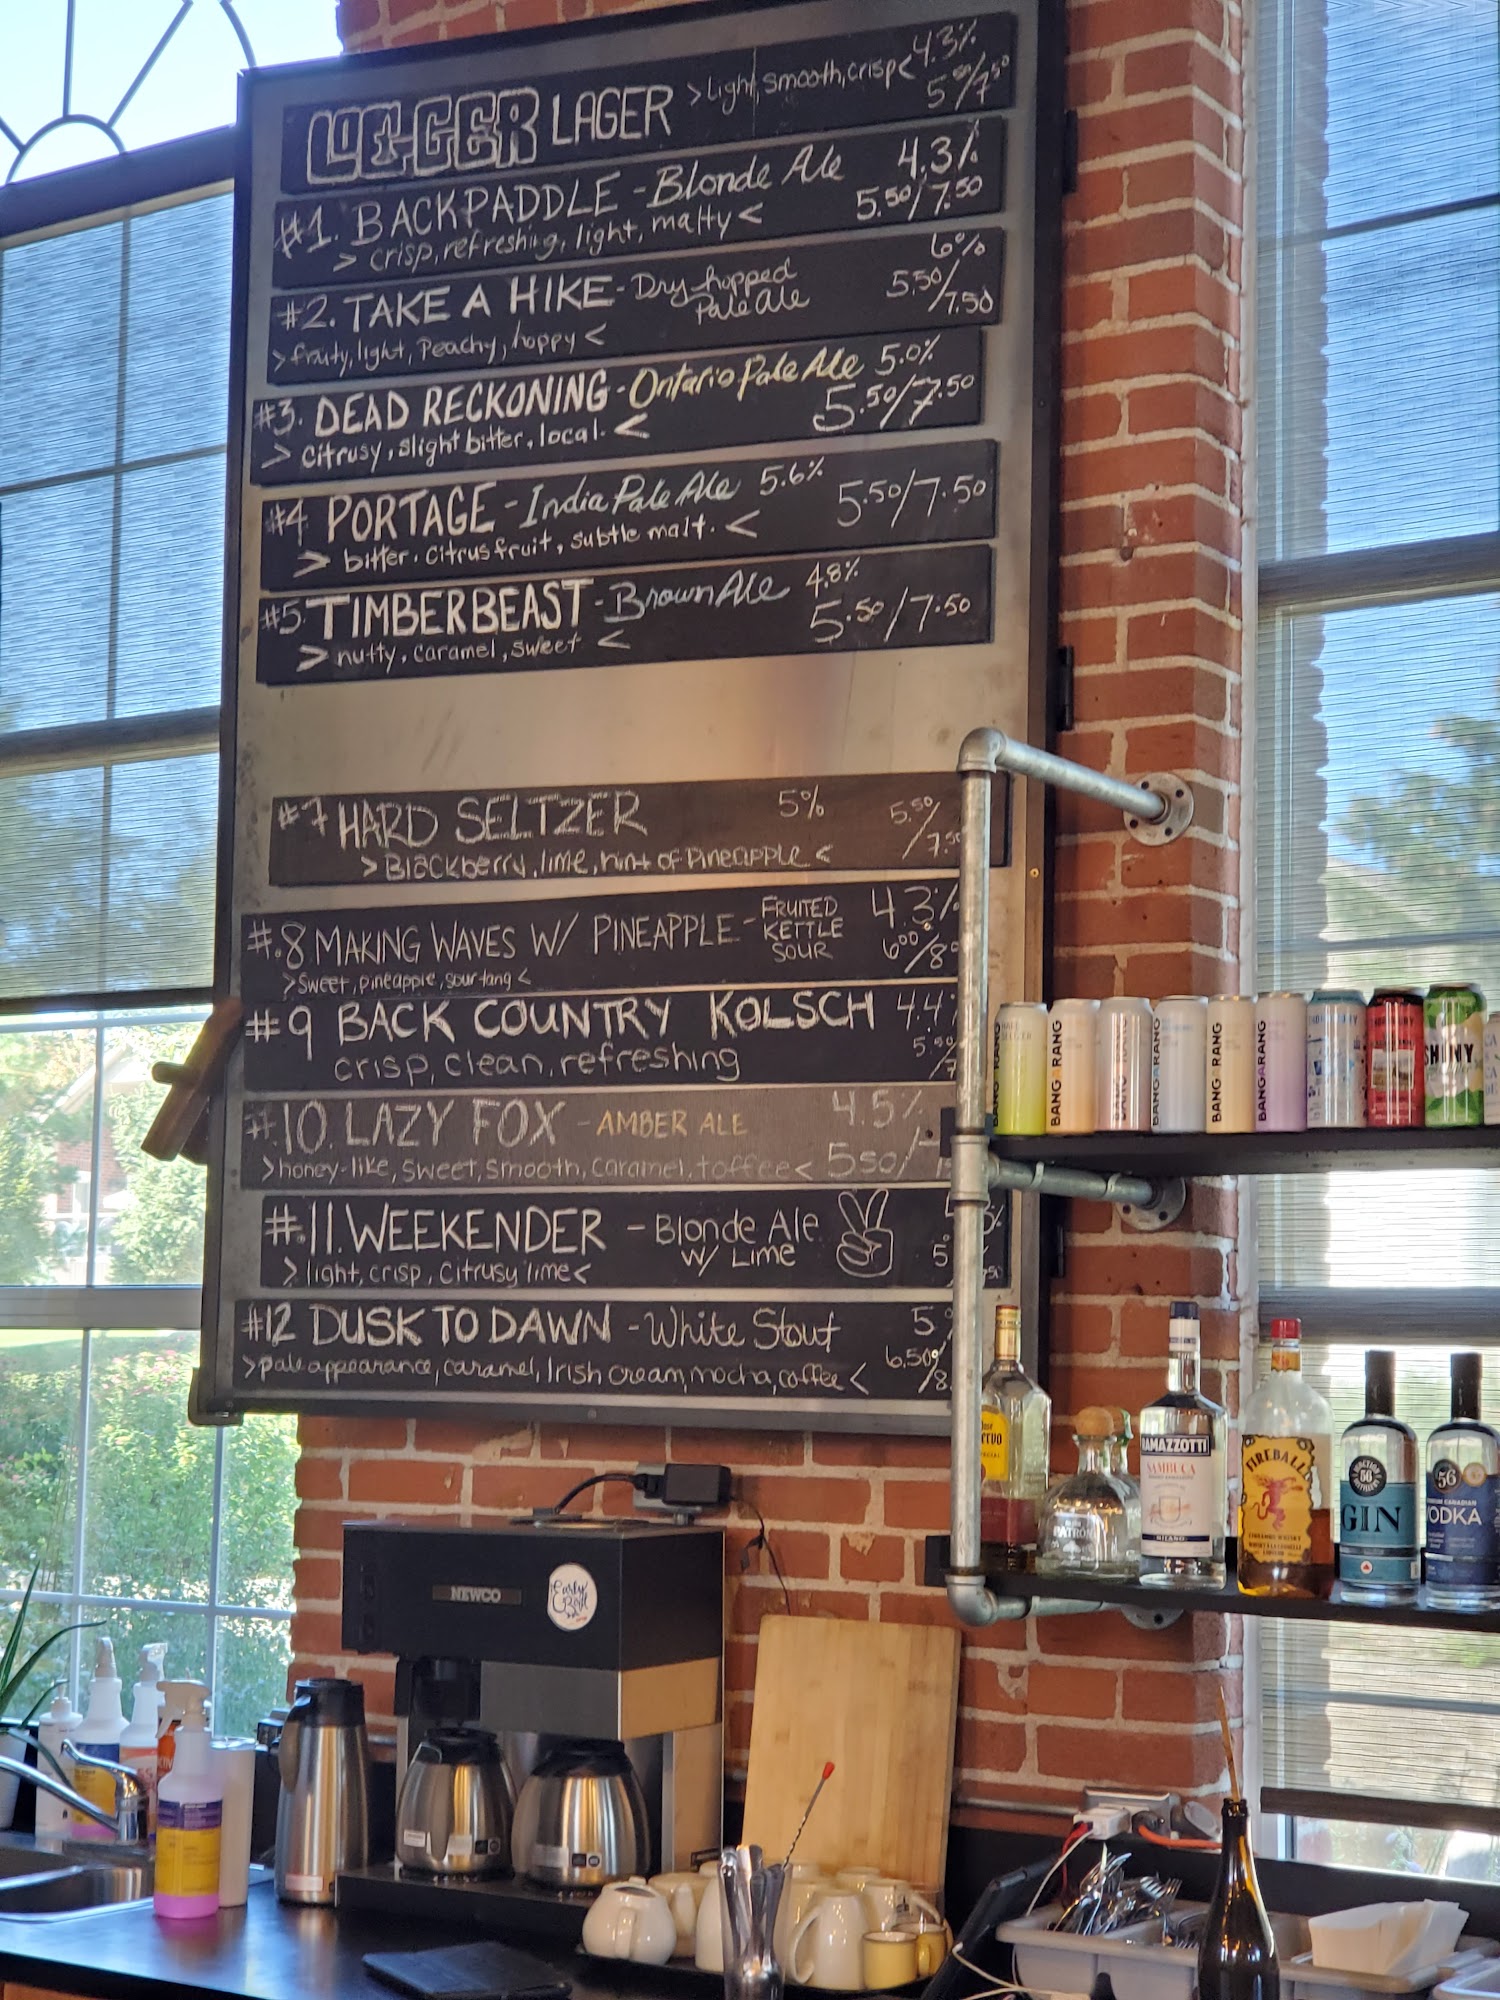 LOGGER LAGER >light, smooth, crisp< 4.3%
5.50/7.50
#1. BACKPADDLE - Blonde Ale 4.3%
> crisp, refreshing, light, malty < 5.50/7.50
#2. TAKE A HIKE - Dry-hopped Pale Ale 6%
>fruity, light, Peachy, hoppy < 5.50/7.50
#3. DEAD RECKONING - Ontario Pale Ale 5.0%
> citrusy, slight bitter, local. < 5.50/7.50
#4 PORTAGE - India Pale Ale 5.6% 5.50/7.50
> bitter. citrus fruit, subtle malt. <
#5. TIMBERBEAST - Brown Ale 4.8%
> nutty, caramel, sweet < 5.50/7.50
#7 HARD SELTZER 5% 5.50/7.50
>Blackberry, lime, hint of Pineapple <
#.8 MAKING WAVES W/ PINEAPPLE - FRUITED KETTLE SOUR 4.3%
>Sweet, pineapple, sour tang < 6.00/8
#9 BACK COUNTRY KOLSCH 4.4
crisp, clean, refreshing 5.50/7
#.10. LAZY FOX - AMBER ALE 4.5%
>honey-like, sweet, smooth, caramel, toffee< 5.50/
#.11. WEEKENDER - Blonde Ale w/ Lime
> light, crisp, citrusy lime < 5
#12 DUSK TO DAWN - White Stout 5
>pale appearance, caramel, Irish cream, mocha, coffee < 6.50/8
BANGARANG
BANGARANG
BANGARANG
BANGARANG
BANGARANG
SHINY
Jose Cuervo
PATRÓN
RAMAZZOTTI
SAMBUCA
MILANO
FIREBALL
JUNCTION
56
DISTILLERY
GIN
56
VODKA
NEWCO